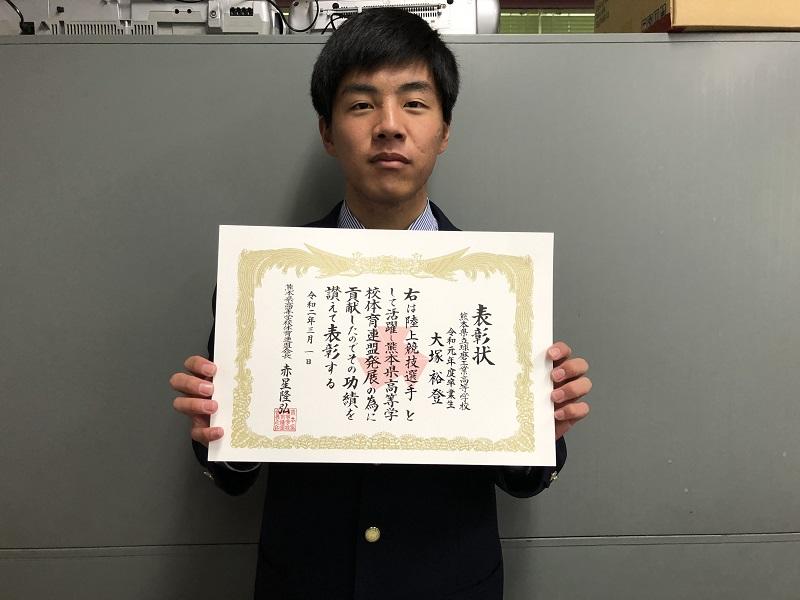 表彰状
熊本県立球磨工業高等学校
令和元年度卒業生
大塚裕登
右は陸上競技選手と
して活躍し熊本県高等学
校体育連盟発展の為に
貢献したのでその功績を
讃えて表彰する
令和二年三月一日
熊本県高等学校体育連盟会長 赤星隆弘